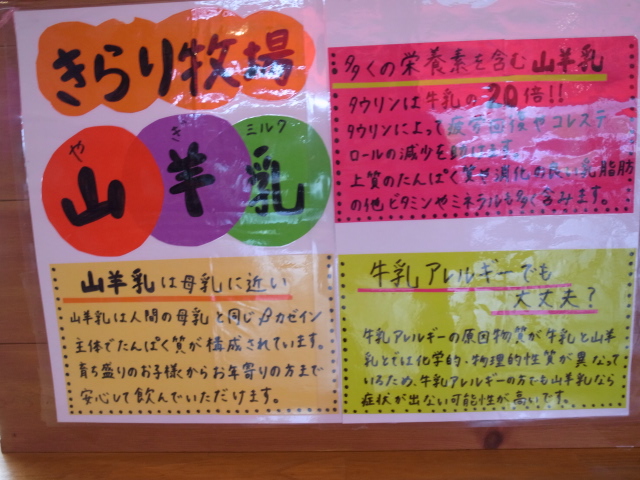 きらり牧場
や ぎ ミルク
山 羊 乳
山羊乳は母乳に近い
山羊乳は人間の母乳と同じβカゼイン
主体でたんぱく質が構成されています。
育ち盛りのお子様からお年寄りの方まで
安心して飲んでいただけます。
多くの栄養素を含む山羊乳
タウリンは牛乳の20倍!!
タウリンによって疲労回復やコレステ
ロールの減少を助けます。
上質のたんぱく質や消化の良い乳脂肪
の他ビタミンやミネラルも多く含みます。
牛乳アレルギーでも
大丈夫?
牛乳アレルギーの原因物質が牛乳と山羊
乳とでは化学的・物理的性質が異なって
いるため、牛乳アレルギーの方でも山羊乳なら
症状が出ない可能性が高いです。